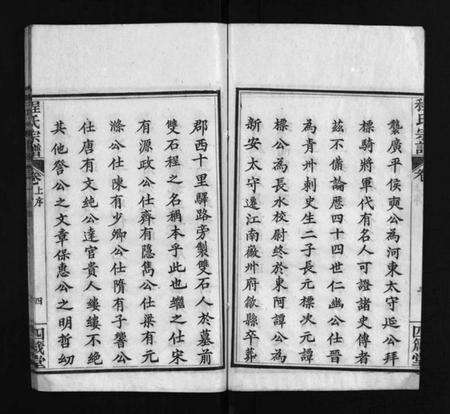 程氏宗譜
襲廣平侯奭公為河東太守延公拜
標騎將軍代有名人可證諸史傳者
茲不備論歷四十四世仁幽公仕晉
為青州刺史生二子長元標次元譚
標公為長水校尉終於東阿譚公為
新安太守遷江南徽州府歙縣卒葬
郡西十里驛路旁製雙石人於墓前
雙石程之名稱本乎此也繼之仕宋
有源政公仕齊有隱雋公仕梁有元
滌公仕陳有少卿公仕隋有子響公
仕唐有文純公達官貴人縷縷不絕
其他誉公之文章保惠公之明哲幼
程氏宗譜
卷上序
四
四箴堂